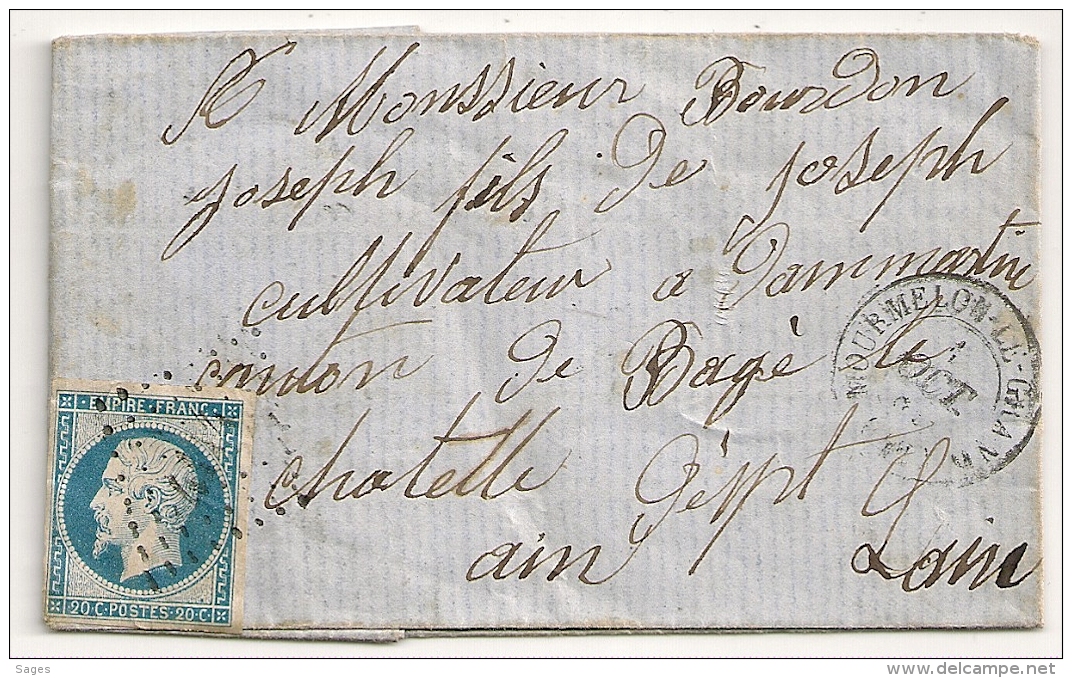 A Monssieur Bourdon
Joseph fils de Joseph
cultivateur a Dammartin
canton de Bagé le
chatelle Déppt
ain Lain
MOURMELON-LE-GRAND
1
OCT.
EMPIRE · FRANC ·
20 · C · POSTES · 20 · C ·
Sages
www.delcampe.net